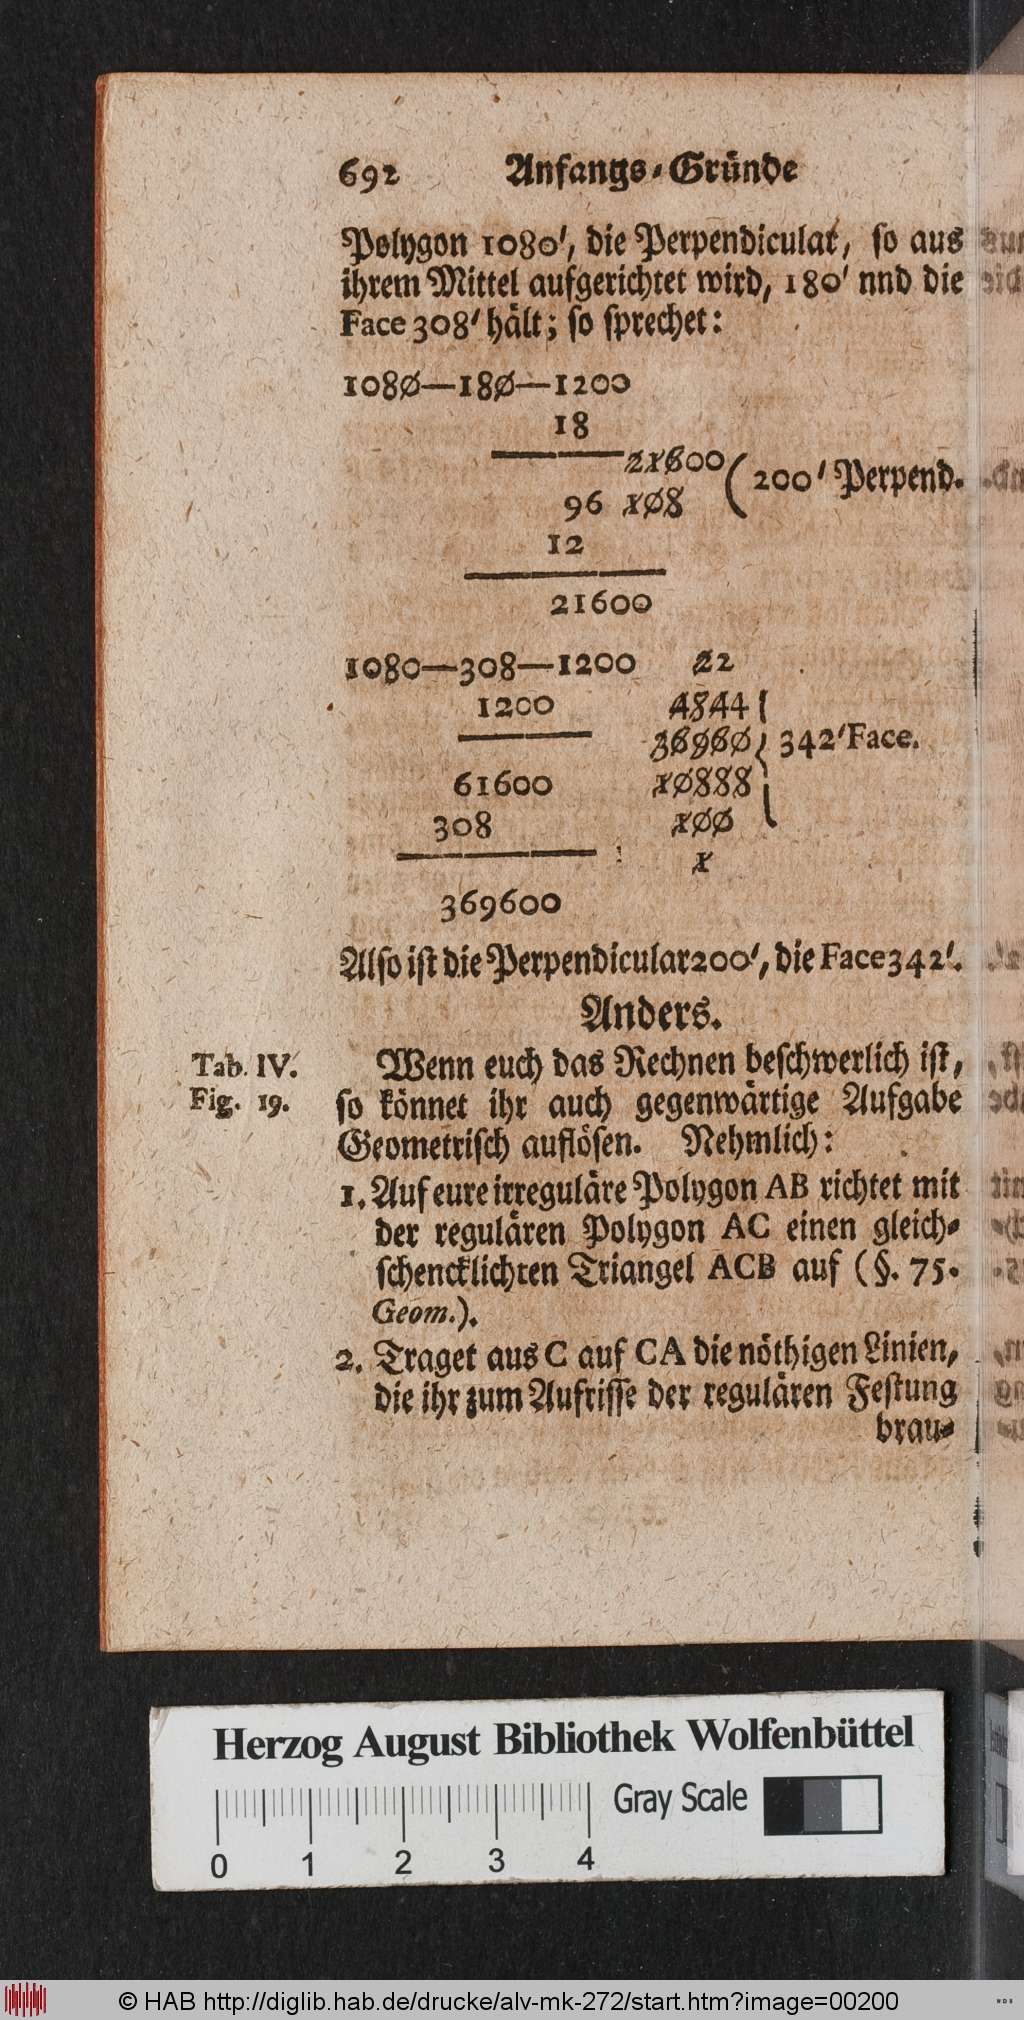 692 Anfangs-Gründe
Polygon 1080', die Perpendicular, so aus
ihrem Mittel aufgerichtet wird, 180' nnd die
Face 308' hält; so sprechet:
1080—180—1200
18
21600 (200' Perpend.
96 108
12
21600
1080—308—1200 22
1200 4844
36960 342' Face.
61600 10888
308 100
1
369600
Also ist die Perpendicular 200', die Face 342'.
Anders.
Tab. IV. Wenn euch das Rechnen beschwerlich ist,
Fig. 19. so könnet ihr auch gegenwärtige Aufgabe
Geometrisch auflösen. Nehmlich:
1. Auf eure irreguläre Polygon AB richtet mit
der regulären Polygon AC einen gleich-
schencklichten Triangel ACB auf (§. 75.
Geom.).
2. Traget aus C auf CA die nöthigen Linien,
die ihr zum Aufrisse der regulären Festung
brau-
Herzog August Bibliothek Wolfenbüttel
Gray Scale
0 1 2 3 4
© HAB http://diglib.hab.de/drucke/alv-mk-272/start.htm?image=00200